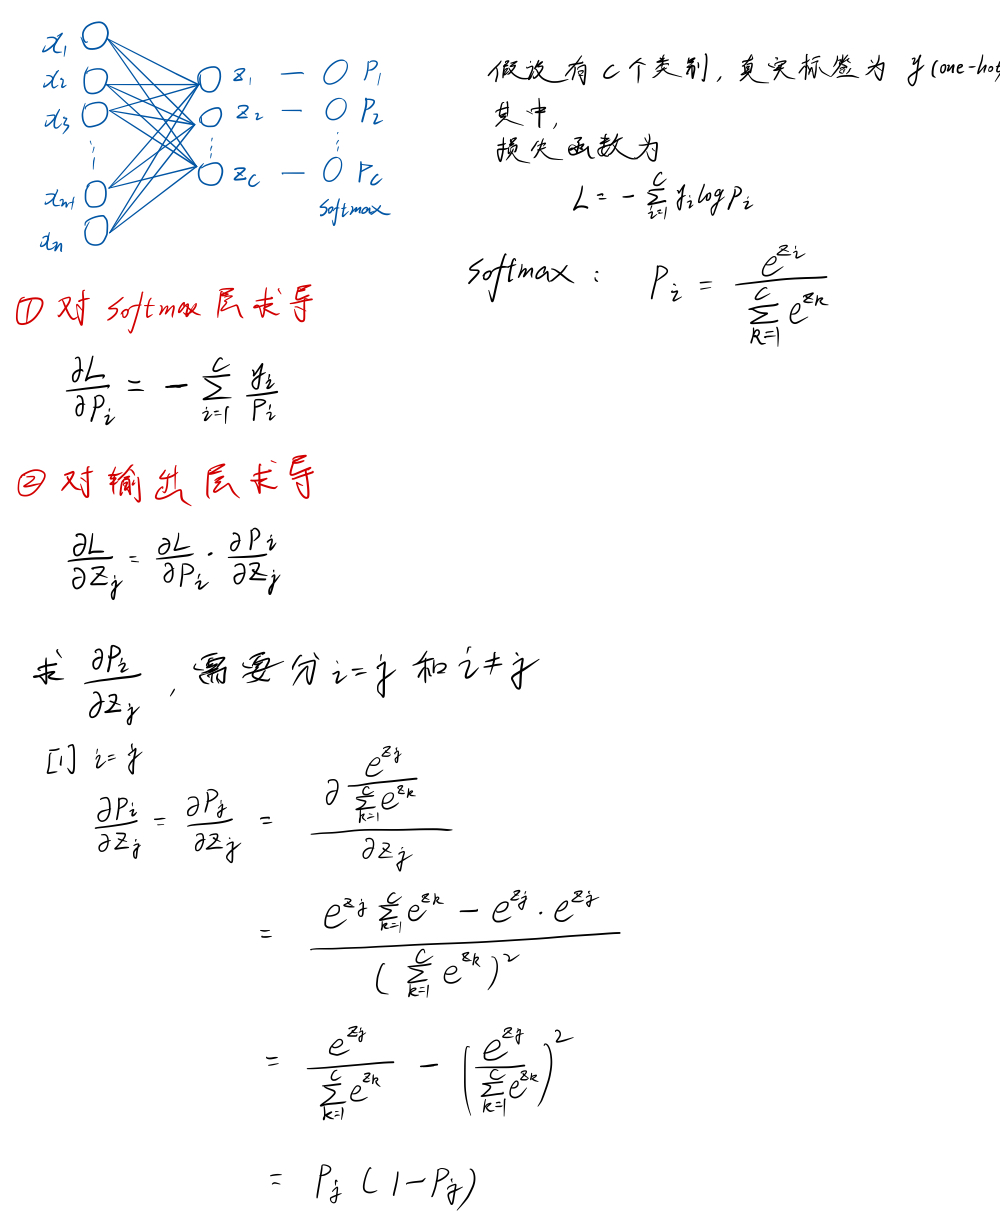 x₁
x₂
x₃
⋮
xₙ₊₁
xₙ
z₁ — P₁
z₂ — P₂
⋮ ⋮
z_C — P_C
softmax
假设有 C 个类别, 真实标签为 y (one-hot
其中,
损失函数为
L = - ∑_{i=1}^{C} y_i log P_i
softmax : P_i = e^{z_i} / ∑_{k=1}^{C} e^{z_k}
① 对 softmax 层求导
∂L/∂P_i = - ∑_{i=1}^{C} y_i/P_i
② 对输出层求导
∂L/∂z_j = ∂L/∂P_i · ∂P_i/∂z_j
求 ∂P_i/∂z_j , 需要分 i=j 和 i≠j
[1] i=j
∂P_i/∂z_j = ∂P_j/∂z_j = ∂ (e^{z_j} / ∑_{k=1}^{C} e^{z_k}) / ∂z_j
= (e^{z_j} ∑_{k=1}^{C} e^{z_k} - e^{z_j} · e^{z_j}) / (∑_{k=1}^{C} e^{z_k})²
= e^{z_j} / ∑_{k=1}^{C} e^{z_k} - (e^{z_j} / ∑_{k=1}^{C} e^{z_k})²
= P_j (1-P_j)